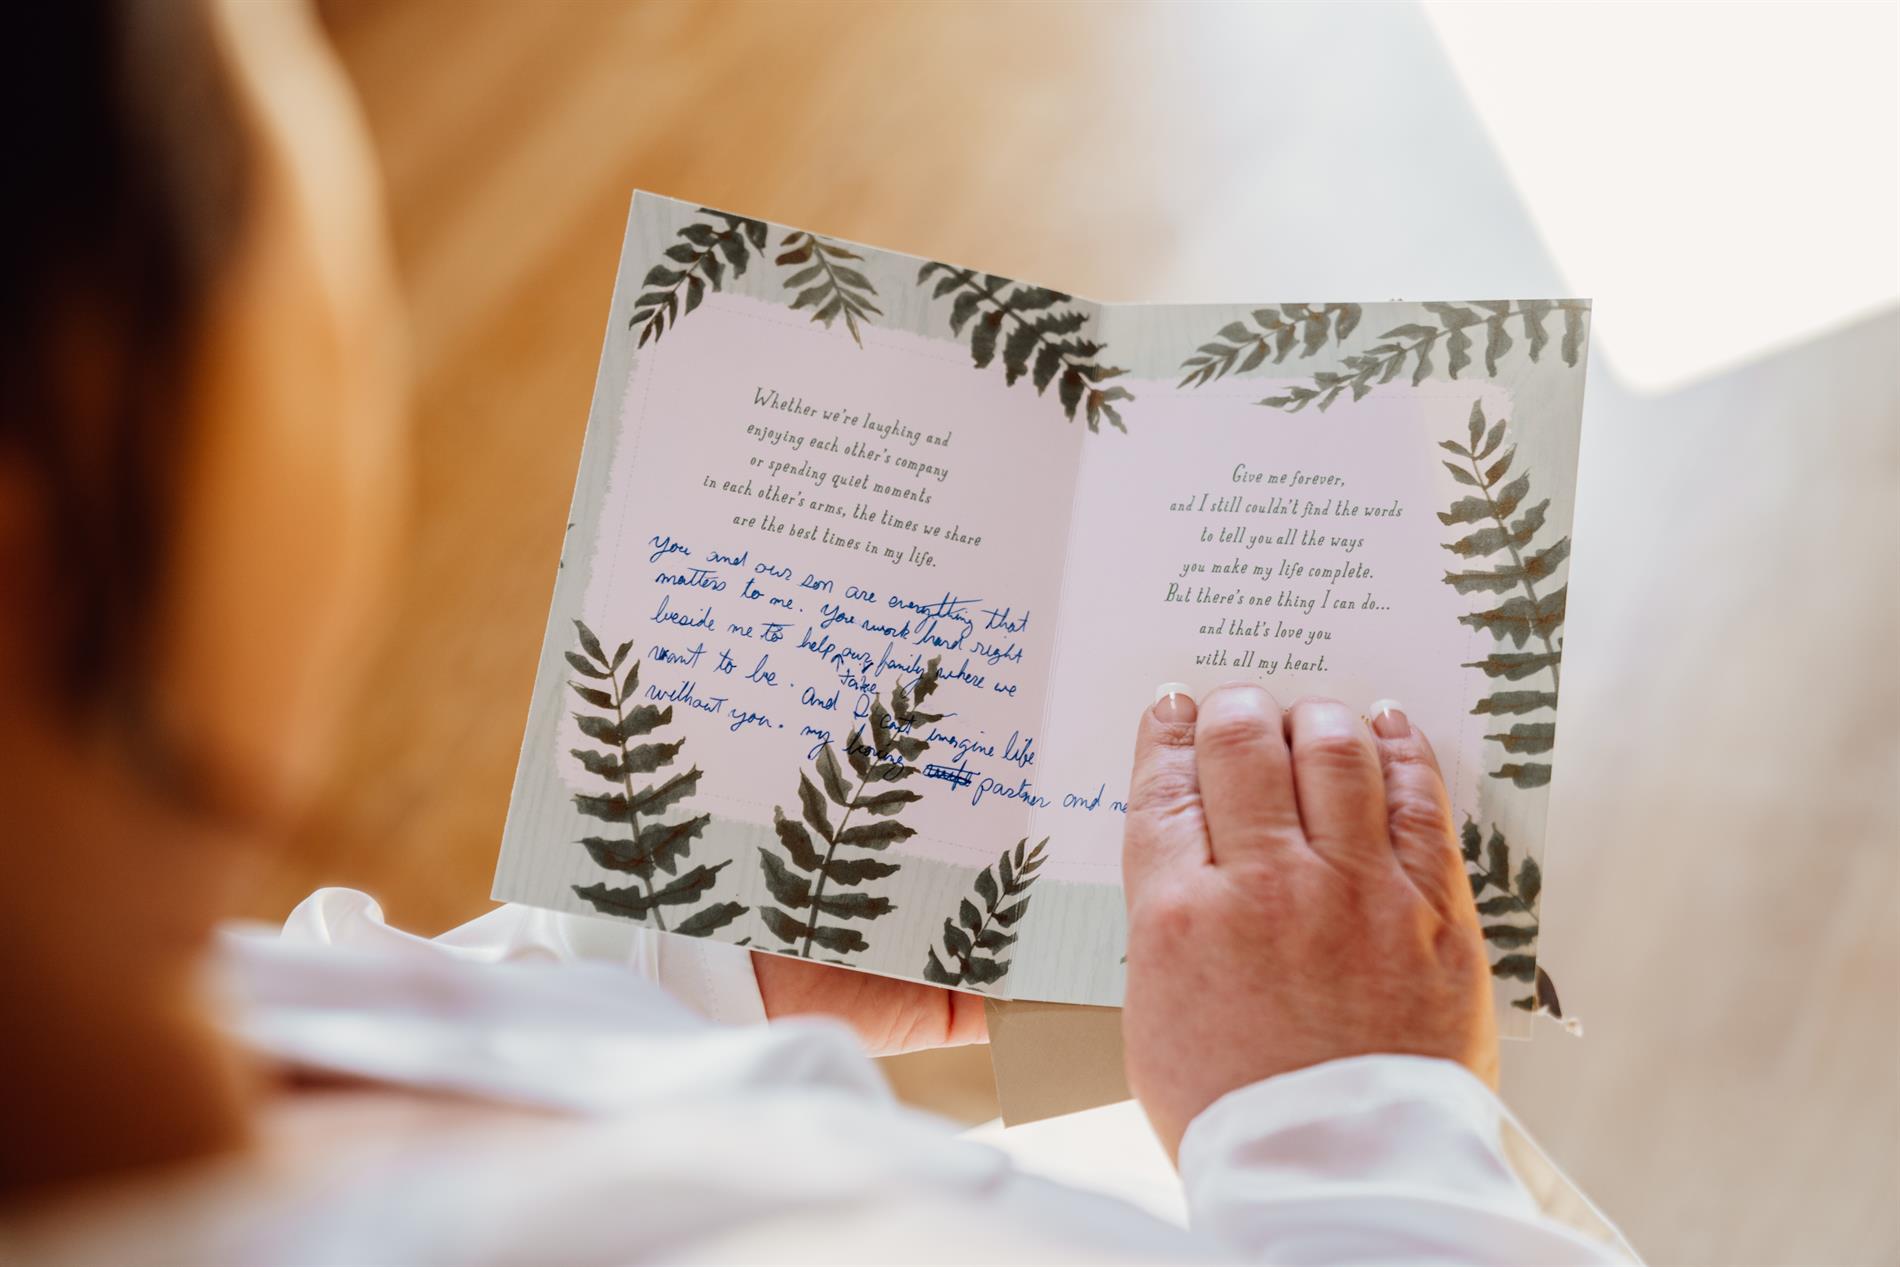 Whether we're laughing and
enjoying each other's company
or spending quiet moments
in each other's arms, the times we share
are the best times in my life.
You and our son are everything that
matters to me. You work hard right
beside me to help our family where we
take
want to be. And I cant imagine life
without you. my loving partner and
Give me forever,
and I still couldn't find the words
to tell you all the ways
you make my life complete.
But there's one thing I can do...
and that's love you
with all my heart.